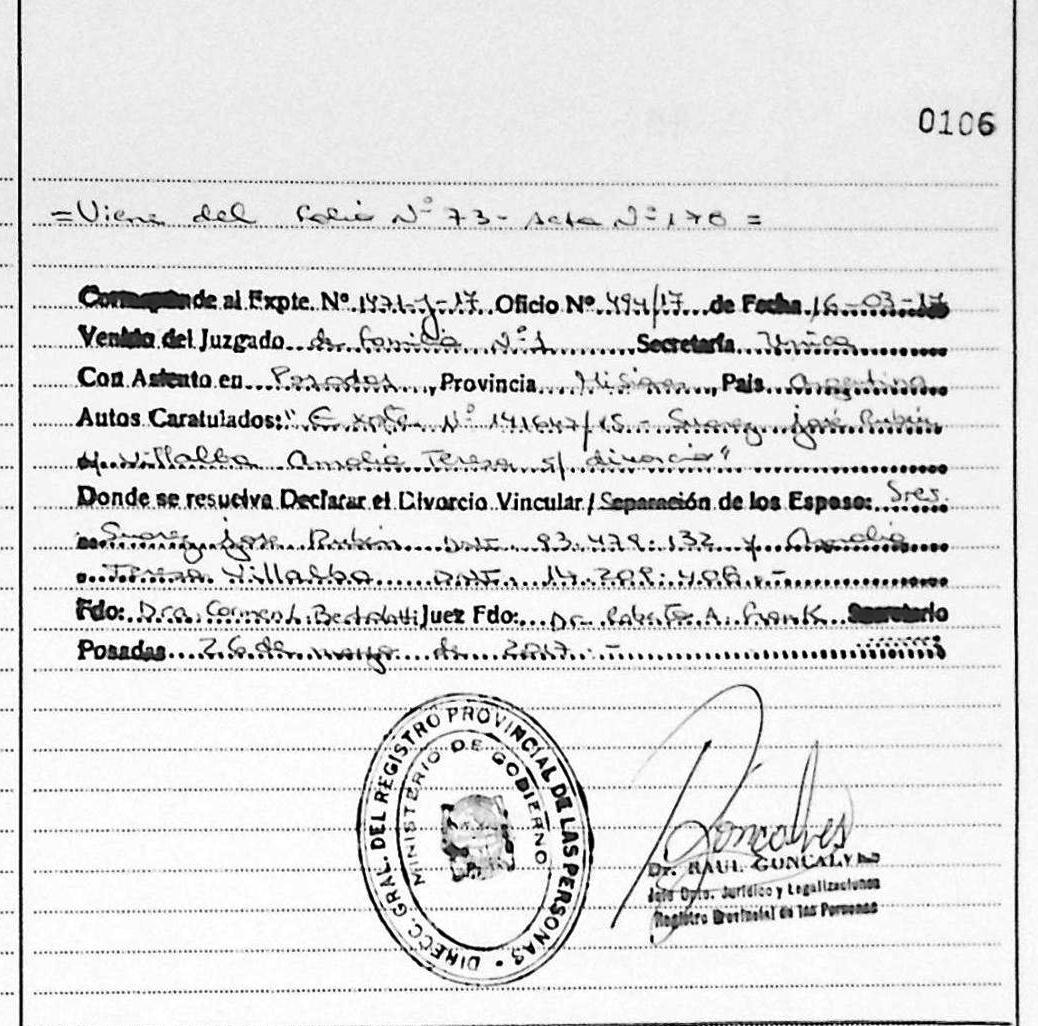 0106
=Viene del Folio Nº 73- Acta Nº 178 =
Corresponde al Expte. Nº 1471-J-17 Oficio Nº 494/17 de Fecha 16-03-17
Venido del Juzgado de Familia Nº1 Secretaría Unica
Con Asiento en Posadas, Provincia Misiones, Pais Argentina
Autos Caratulados: " Expte. Nº /15- Suarez José Rubén
c/ Villalba Amalia Teresa s/ divorcio"
Donde se resuelva Declarar el Divorcio Vincular / Separación de los Esposo: Sres.
Suarez José Rubén DNI. 93.479.132 y Amalia
Teresa Villalba DNI. 14.209.408.-
Fdo: Dra. Carmen Juez Fdo: Dr. Roberto A. Frank Secretario
Posadas 26 de marzo de 2017.-
DIRECC. GRAL. DEL REGISTRO PROVINCIAL DE LAS PERSONAS
MINISTERIO DE GOBIERNO
Goncalves
Dr. RAUL GONCALVES
Jefe Dpto. Jurídico y Legalizaciones
Registro Provincial de las Personas